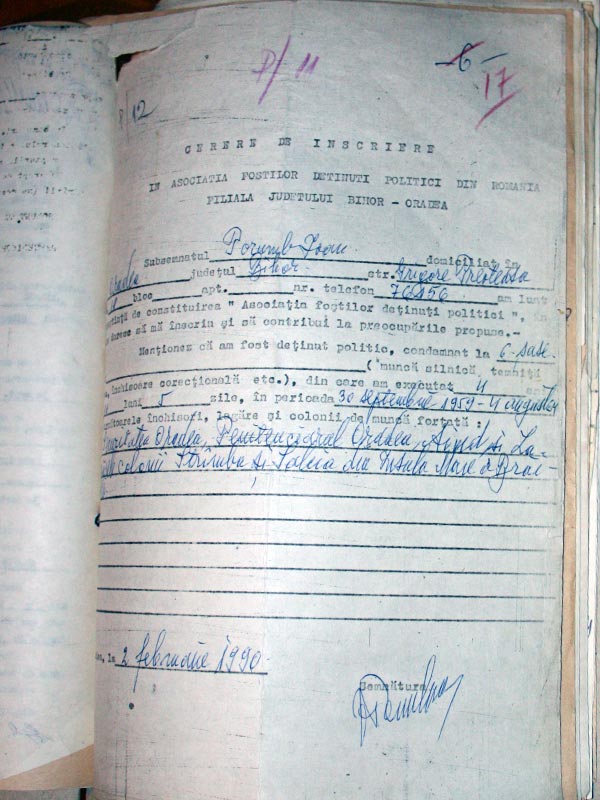 P/11
-6-
17
P/12
CERERE DE INSCRIERE
IN ASOCIATIA FOSTILOR DETINUTI POLITICI DIN ROMANIA
FILIALA JUDETULUI BIHOR - ORADEA
Subsemnatul Porumb Ioan domiciliat în
Oradea județul Bihor str. Grigore
bloc apt. nr. telefon 76856 am luat
de constituirea " Asociația foștilor deținuți politici ", în
doresc să mă înscriu și să contribui la preocupările propuse.-
Menționez că am fost deținut politic, condamnat la 6-șase-
( muncă silnică, temniță
închisoare corecțională etc.), din care am executat 4
luni 5 zile, în perioada 30 septembrie 1959-4 august
închisori, lagăre și colonii de muncă forțată :
Securitatea Oradea, Penitenciarul Oradea, Aiud și La-
colonii Strîmba și Salcia din Insula Mare a Brăi-
la 2 februarie 1990-
Semnătura